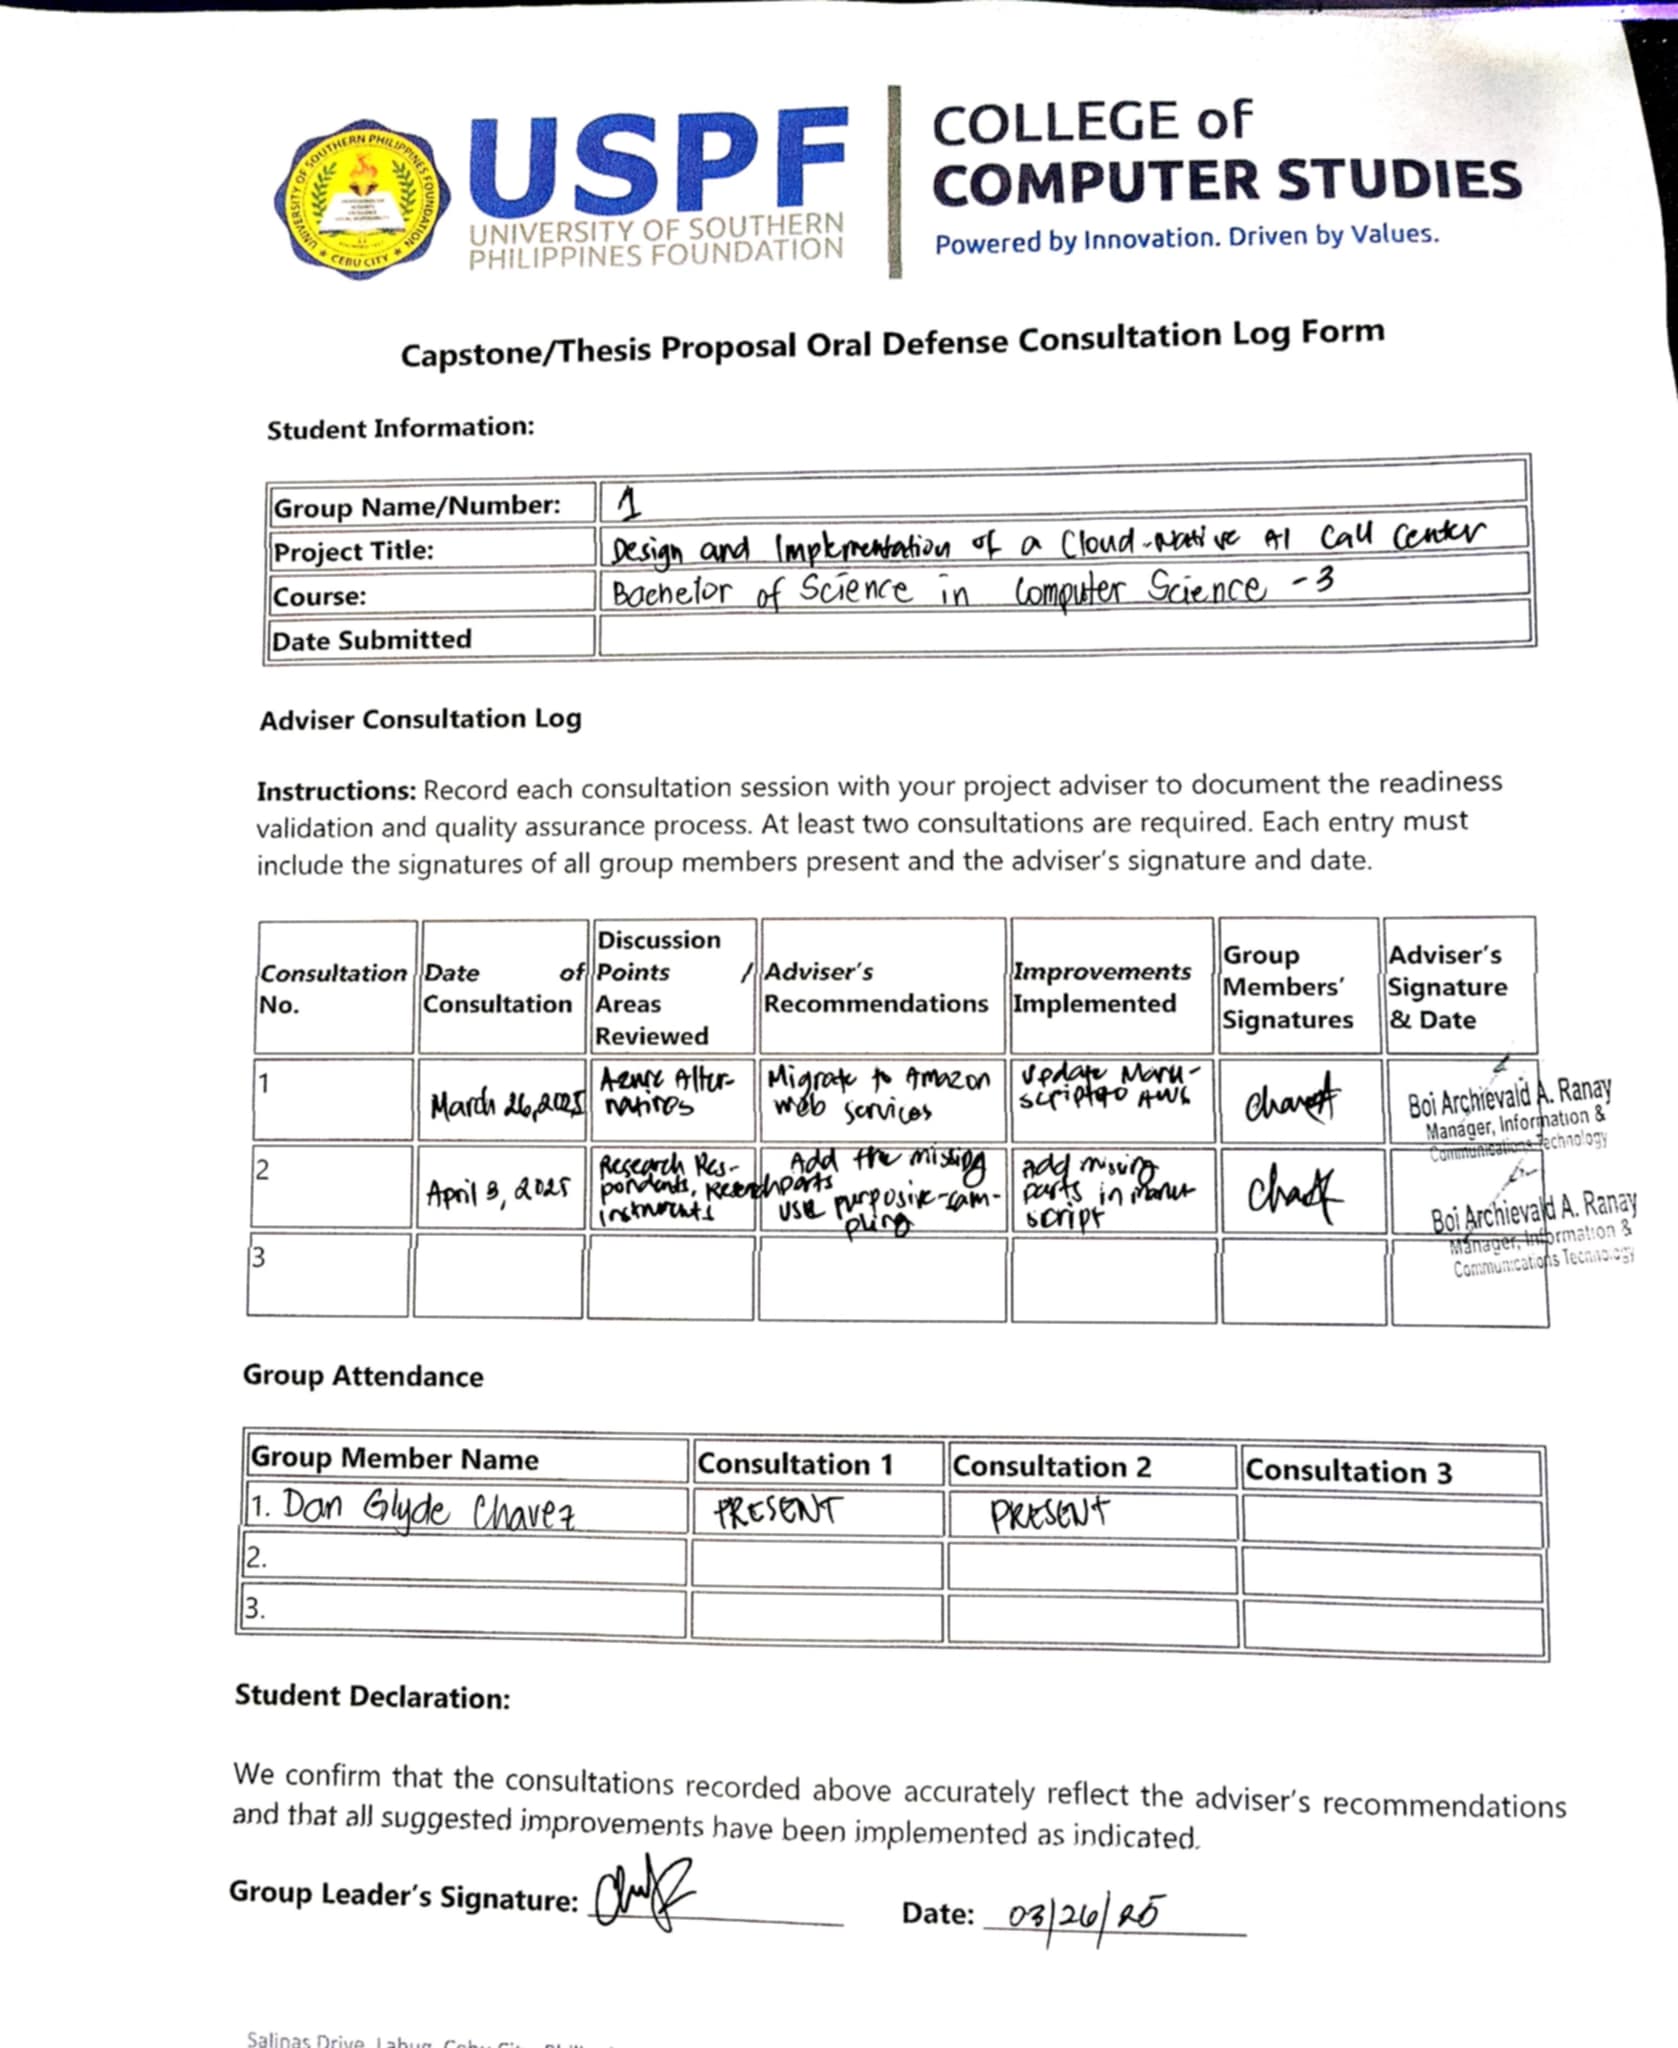 UNIVERSITY OF SOUTHERN PHILIPPINES FOUNDATION
★ CEBU CITY ★
USPF
UNIVERSITY OF SOUTHERN
PHILIPPINES FOUNDATION
COLLEGE of
COMPUTER STUDIES
Powered by Innovation. Driven by Values.
Capstone/Thesis Proposal Oral Defense Consultation Log Form
Student Information:
Group Name/Number: 1
Project Title: Design and Implementation of a Cloud-Native AI Call Center
Course: Bachelor of Science in Computer Science -3
Date Submitted
Adviser Consultation Log
Instructions: Record each consultation session with your project adviser to document the readiness
validation and quality assurance process. At least two consultations are required. Each entry must
include the signatures of all group members present and the adviser's signature and date.
Consultation No.
Date of Consultation
Discussion Points / Areas Reviewed
Adviser's Recommendations
Improvements Implemented
Group Members' Signatures
Adviser's Signature & Date
1
March 26, 2025
Azure Alter-
natives
Migrate to Amazon
web services
Update Manu-
script to AWS
Boi Archievald A. Ranay
Manager, Information &
Communications Technology
2
April 3, 2025
Research Res-
pondents, Research
instruments
Add the missing
parts
use purposive-sam-
pling
add missing
parts in manu
script
Boi Archievald A. Ranay
Manager, Information &
Communications Technology
3
Group Attendance
Group Member Name Consultation 1 Consultation 2 Consultation 3
1. Dan Glyde Chavez PRESENT PRESENT
2.
3.
Student Declaration:
We confirm that the consultations recorded above accurately reflect the adviser's recommendations
and that all suggested improvements have been implemented as indicated.
Group Leader's Signature: Date: 03/26/25
Salinas Drive, Lahug, Cebu City,